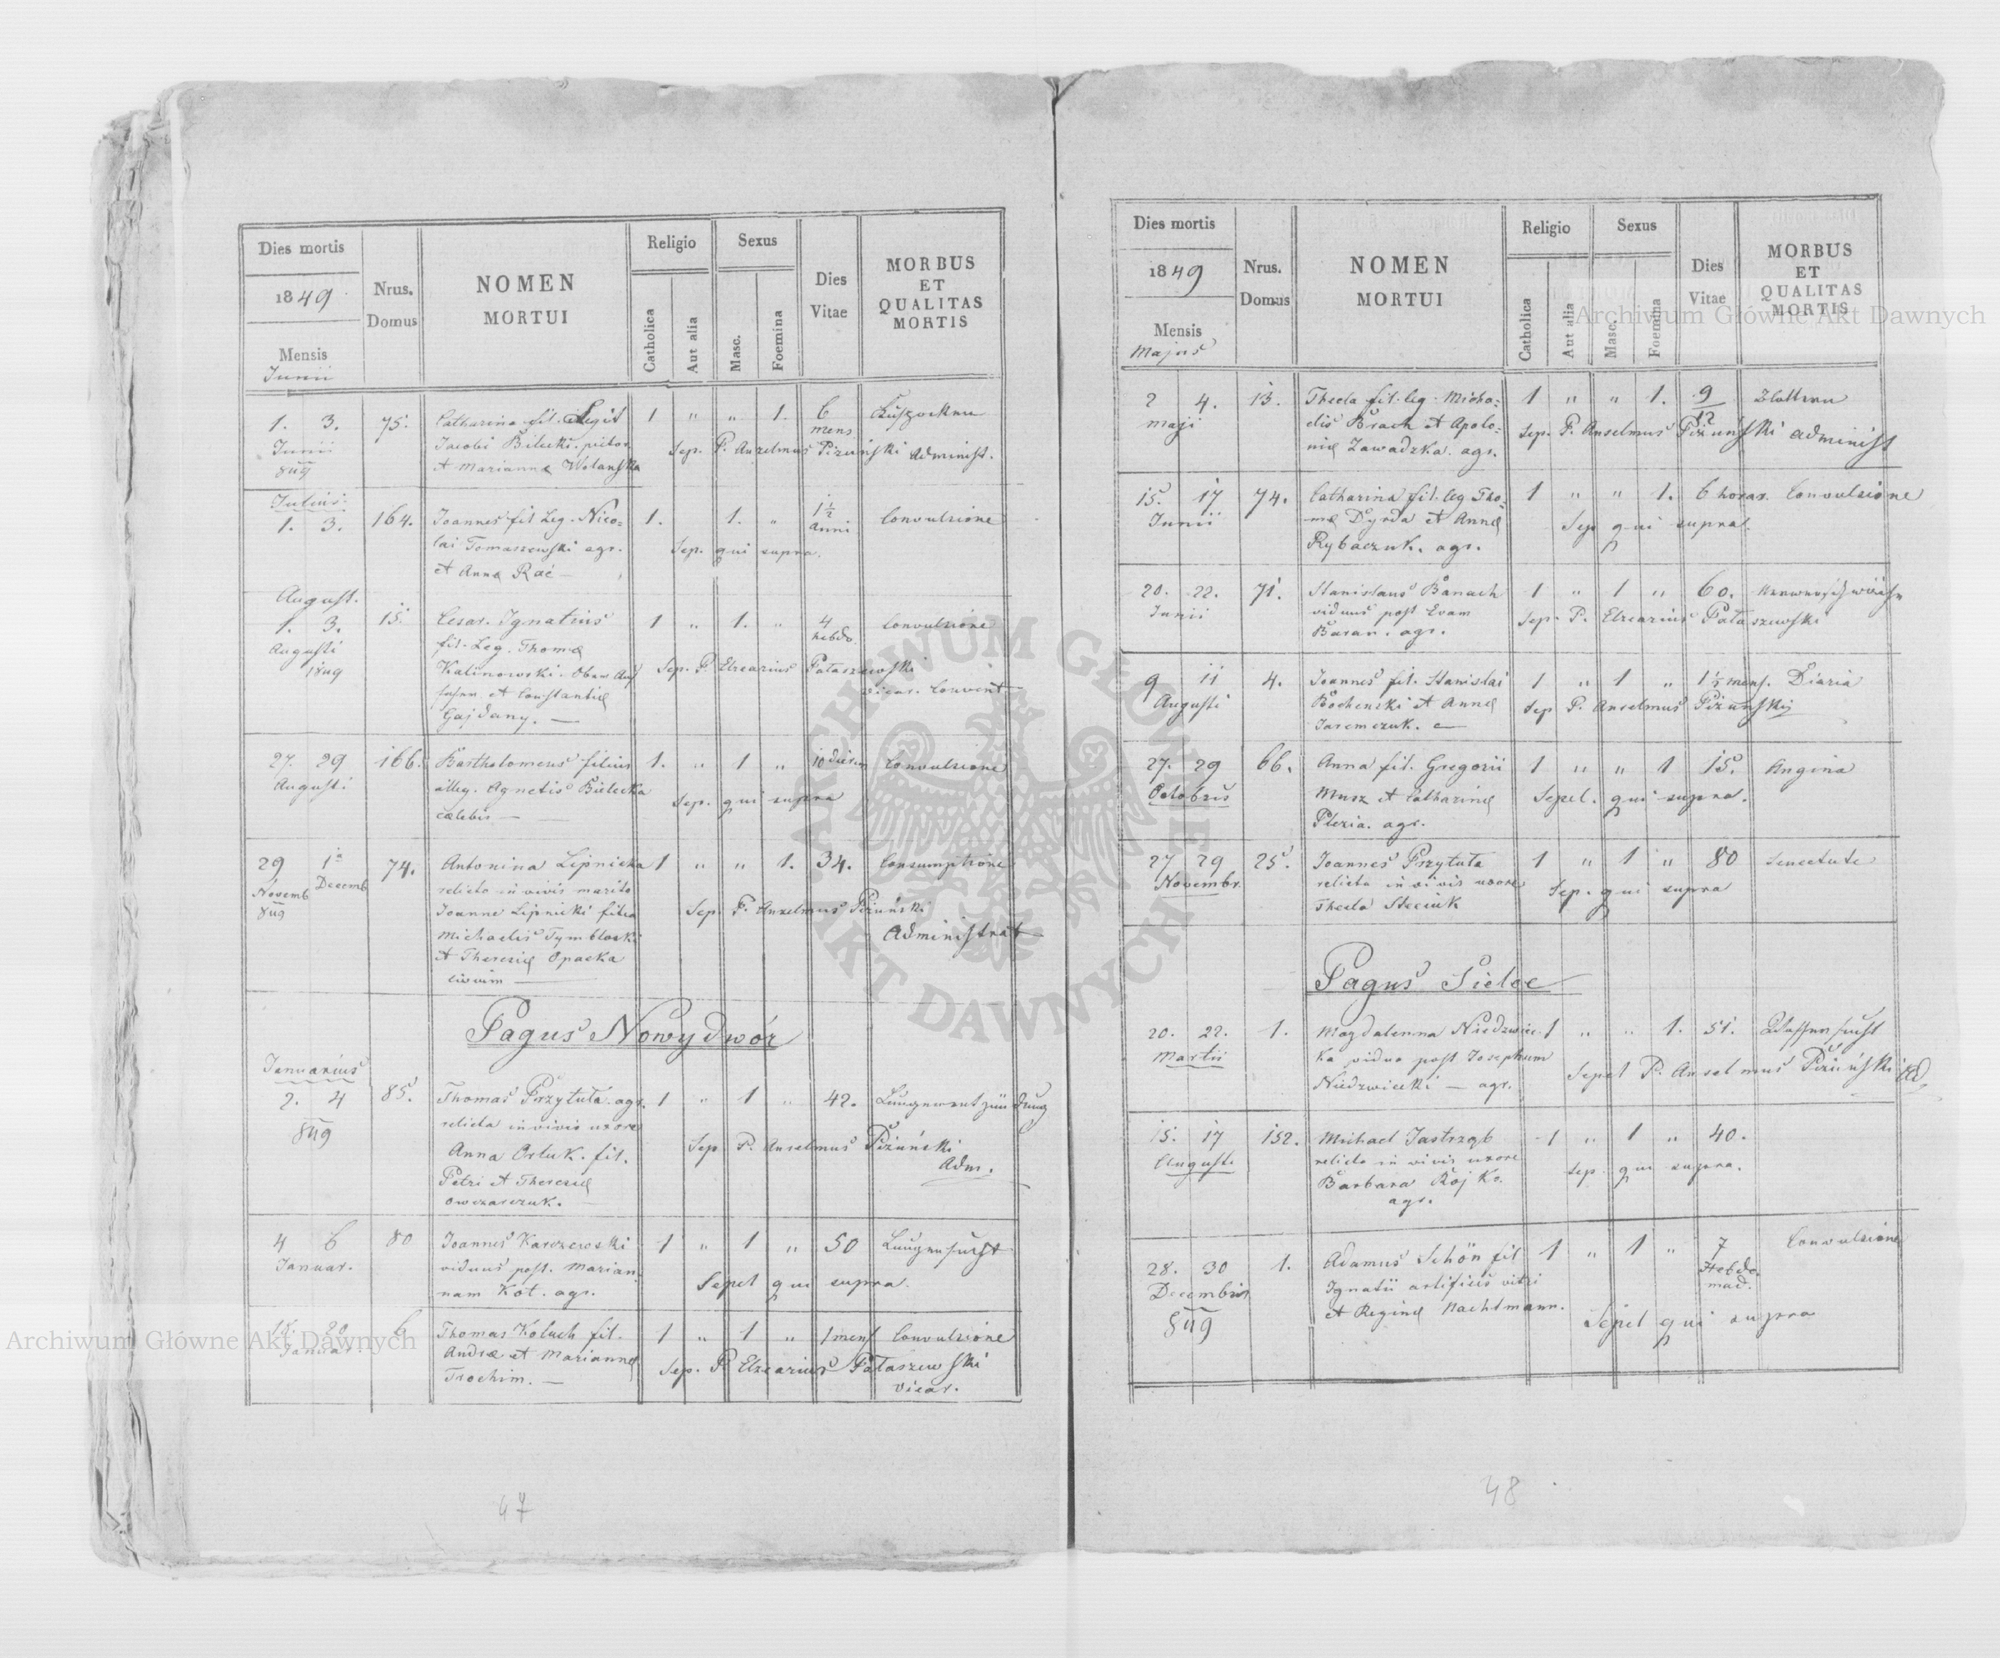 Dies mortis
1849
Mensis
Junii
Nrus.
Domus
NOMEN
MORTUI
Religio
Catholica
Aut alia
Sexus
Masc.
Foemina
Dies
Vitae
MORBUS
ET
QUALITAS
MORTIS
1. 3. 75. Catharina fil. Legit 1 " " 1. 6
Junii Jacobi Bilecki mens
849 et Marianna Wolańska Sep. P. Anzelmus Piziński Administ.
Julius
1. 3. 164. Joannes fil Leg. Nico- 1. 1. " 1½ Convulsione
lai Tomaszewski agr. anni
et Anna Rać Sep. qui supra.
August.
1. 3. 15. Cesar. Ignatius 1 " 1. " 4 Convulsione
Augusti fil. Leg. Thoma hebdo.
1849 Kalinowski Sep. P. Elzearius Pataszewski
et Constantia vicar. Convent
Gajdany.
27. 29 166. Bartholomeus filius 1. " 1 " 10 dierum Convulsione
Augusti illeg. Agnetis Bielecka
caelebis Sep. qui supra
29 1a 74. Antonina Lipnicka 1 " " 1. 34. Consumptione
Novemb Decemb relicto in vivis marito
849 Joanne Lipnicki filia Sep P. Anzelmus Piziński
Michaelis Tymblarski Administrat
et Theresia Opacka
civium
Pagus Nowy dwór
Januarius
2. 4 85. Thomas Przytuła agr. 1 " 1 " 42. Lungenentzündung
849 relicta in vivis uxore
Anna Orluk. fil. Sep P. Anselmus Piziński
Petri et Theresia Adm.
Owczarczuk.
4 6 80 Joannes Karczewski 1 " 1 " 50 Lungensucht
Januar. viduus post. Marian-
nam Kot. agr. Sepel qui supra.
18. 20 6 Thomas Koluch fil. 1 " 1 " 1 mens Convulsione
Januar. Andrae et Marianna
Trochim. Sep. P. Elzearius Pataszewski
vicar.
47
Dies mortis
1849
Mensis
Majus
Nrus.
Domus
NOMEN
MORTUI
Religio
Catholica
Aut alia
Sexus
Masc.
Foemina
Dies
Vitae
MORBUS
ET
QUALITAS
MORTIS
2 4. 13. Thecla fil. leg. Micha- 1 " " 1. 9/12 Blattern
Maji elis Brach et Apolo-
nia Zawadzka. agr. Sep. P. Anselmus Piziński administ
15. 17 74. Catharina fil. leg Tho- 1 " " 1. 6 horar. Convulsione
Junii ma Dyrda et Anna
Rybaczuk. agr. Sep qui supra.
20. 22. 71. Stanislaus Banach 1 " 1 " 60.
Junii viduus post Evam
Baran. agr. Sep. P. Elzearius Pataszewski
9 11 4. Joannes fil. Stanislai 1 " 1 " 1½ mens. Diaria
Augusti Bochenski et Anna
Jaremczuk. Sep P. Anselmus Piziński
27. 29 66. Anna fil. Gregorii 1 " " 1 15. Angina
Octobris Musz et Catharina
Plezia. agr. Sepel. qui supra.
27 29 25. Joannes Przytuła 1 " 1 " 80 Senectute
Novembr. relicta in vivis uxore
Thecla Steciuk Sep. qui supra
Pagus Sielec
20. 22. 1. Magdalenna Niedzwiec- 1 " " 1. 51. Wassersucht
Martii ka vidua post Josephum
Niedzwiecki agr. Sepel P. Anselmus Piziński Ad.
15. 17 152. Michael Jastrząb 1 " 1 " 40.
Augusti relicta in vivis uxore
Barbara sep. qui supra.
agr.
28. 30 1. Adamus Schön fil 1 " 1 " 7 Convulsione
Decembris Ignatii artificis vitri Hebdo-
849 et Regina Nachtmann. mad.
Sepel qui supra
48
Archiwum Główne Akt Dawnych
Archiwum Główne Akt Dawnych
ARCHIWUM GŁÓWNE AKT DAWNYCH